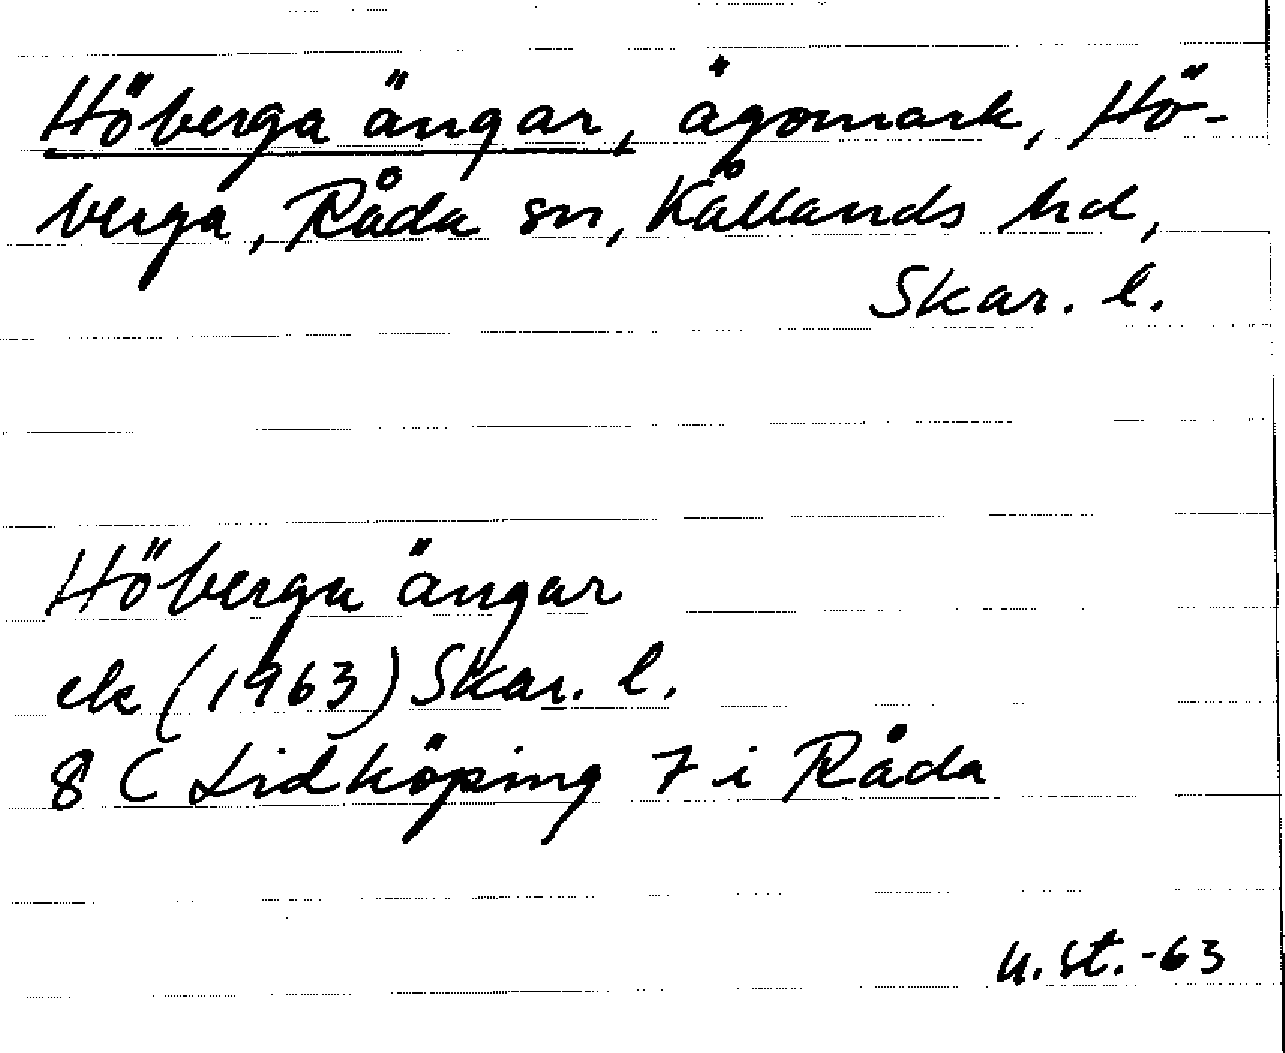 Höberga ängar, ägomark, Hö-
berga, Råda sn, Kållands hd,
Skar. l.
Höberga ängar
ek (1963) Skar. l.
8 C Lidköping 7 i Råda
u. st. -63